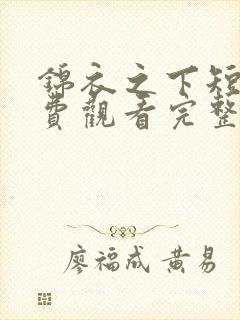 錦衣之下短
費觀看完整
廖福成 黃易